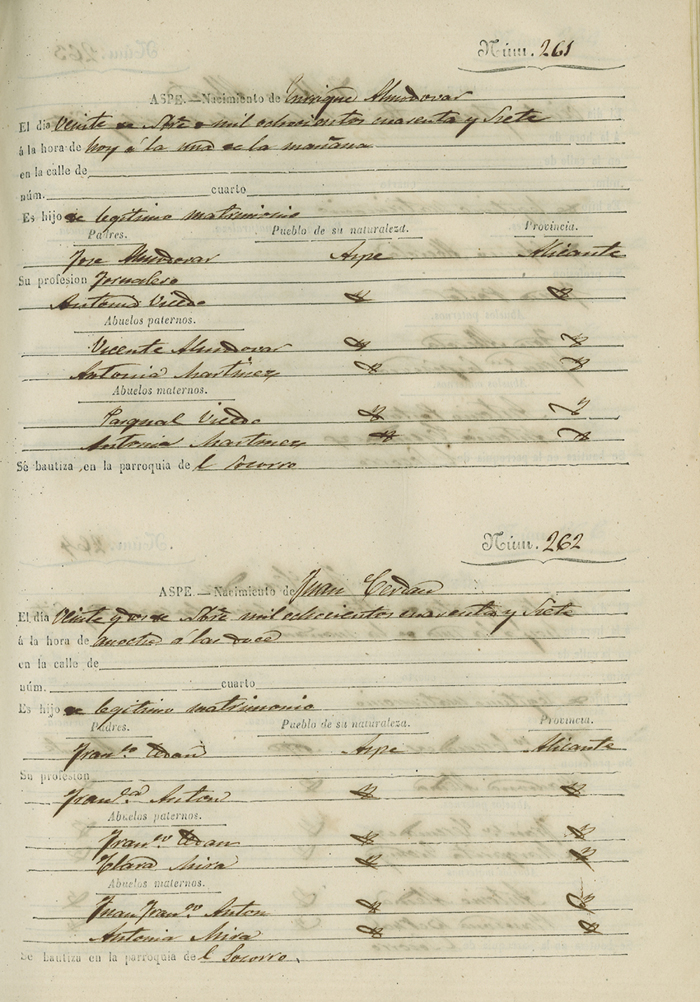 Núm. 261
ASPE.—Nacimiento de Enrique Almodovar
El dia Veinte de Sbre mil ochocientos cuarenta y Siete
á la hora de hoy á la una de la mañana
en la calle de
núm. cuarto
Es hijo de legitimo matrimonio
Padres. Pueblo de su naturaleza. Provincia.
Jose Almodovar Aspe Alicante
Su profesion Jornalero
Antonia Viedo
Abuelos paternos.
Vicente Almodovar
Antonia Martinez
Abuelos maternos.
Pasqual Viedo
Antonia Martinez
Se bautiza en la parroquia de l Socorro
Núm. 262
ASPE.—Nacimiento de Juan Cerdan
El dia Veinte y dos de Sbre mil ochocientos cuarenta y Siete
á la hora de anoche á las doce
en la calle de
núm. cuarto
Es hijo de legitimo matrimonio
Padres. Pueblo de su naturaleza. Provincia.
Fran.co Cerdan Aspe Alicante
Su profesion
Fran.ca Anton
Abuelos paternos.
Fran.co Cerdan
Clara Mira
Abuelos maternos.
Juan Fran.co Anton
Antonia Mira
Se bautiza en la parroquia de l Socorro.